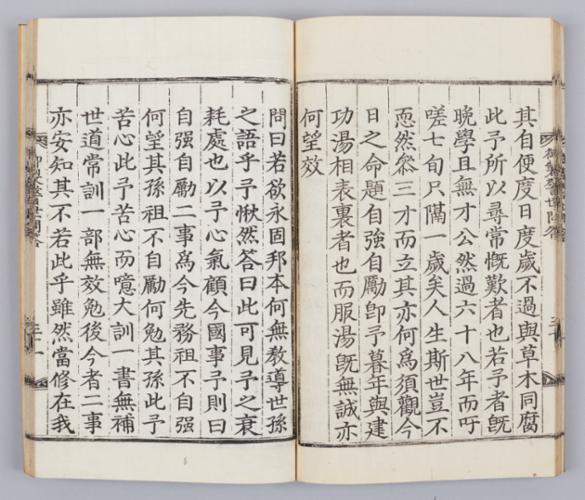 其自便度日度歲不過與草木同腐
此予所以尋常慨歎者也若予者旣
晩學且無才公然過六十八年而吁
嗟七旬只隔一歲矣人生斯世豈不
恧然叅三才而立其亦何爲須觀今
日之命題自強自勵卽予暮年與建
功湯相表裏者也而服湯旣無誠亦
何望效
問曰若欲永固邦本何無敎導世孫
之語乎予愀然答曰此可見予之衰
耗處也以予心氣顧今國事予則曰
自强自勵二事爲今先務祖不自强
何望其孫祖不自勵何勉其孫此予
苦心此予苦心而噫大訓一書無補
世道常訓一部無效勉後今者二事
亦安知其不若此乎雖然當修在我